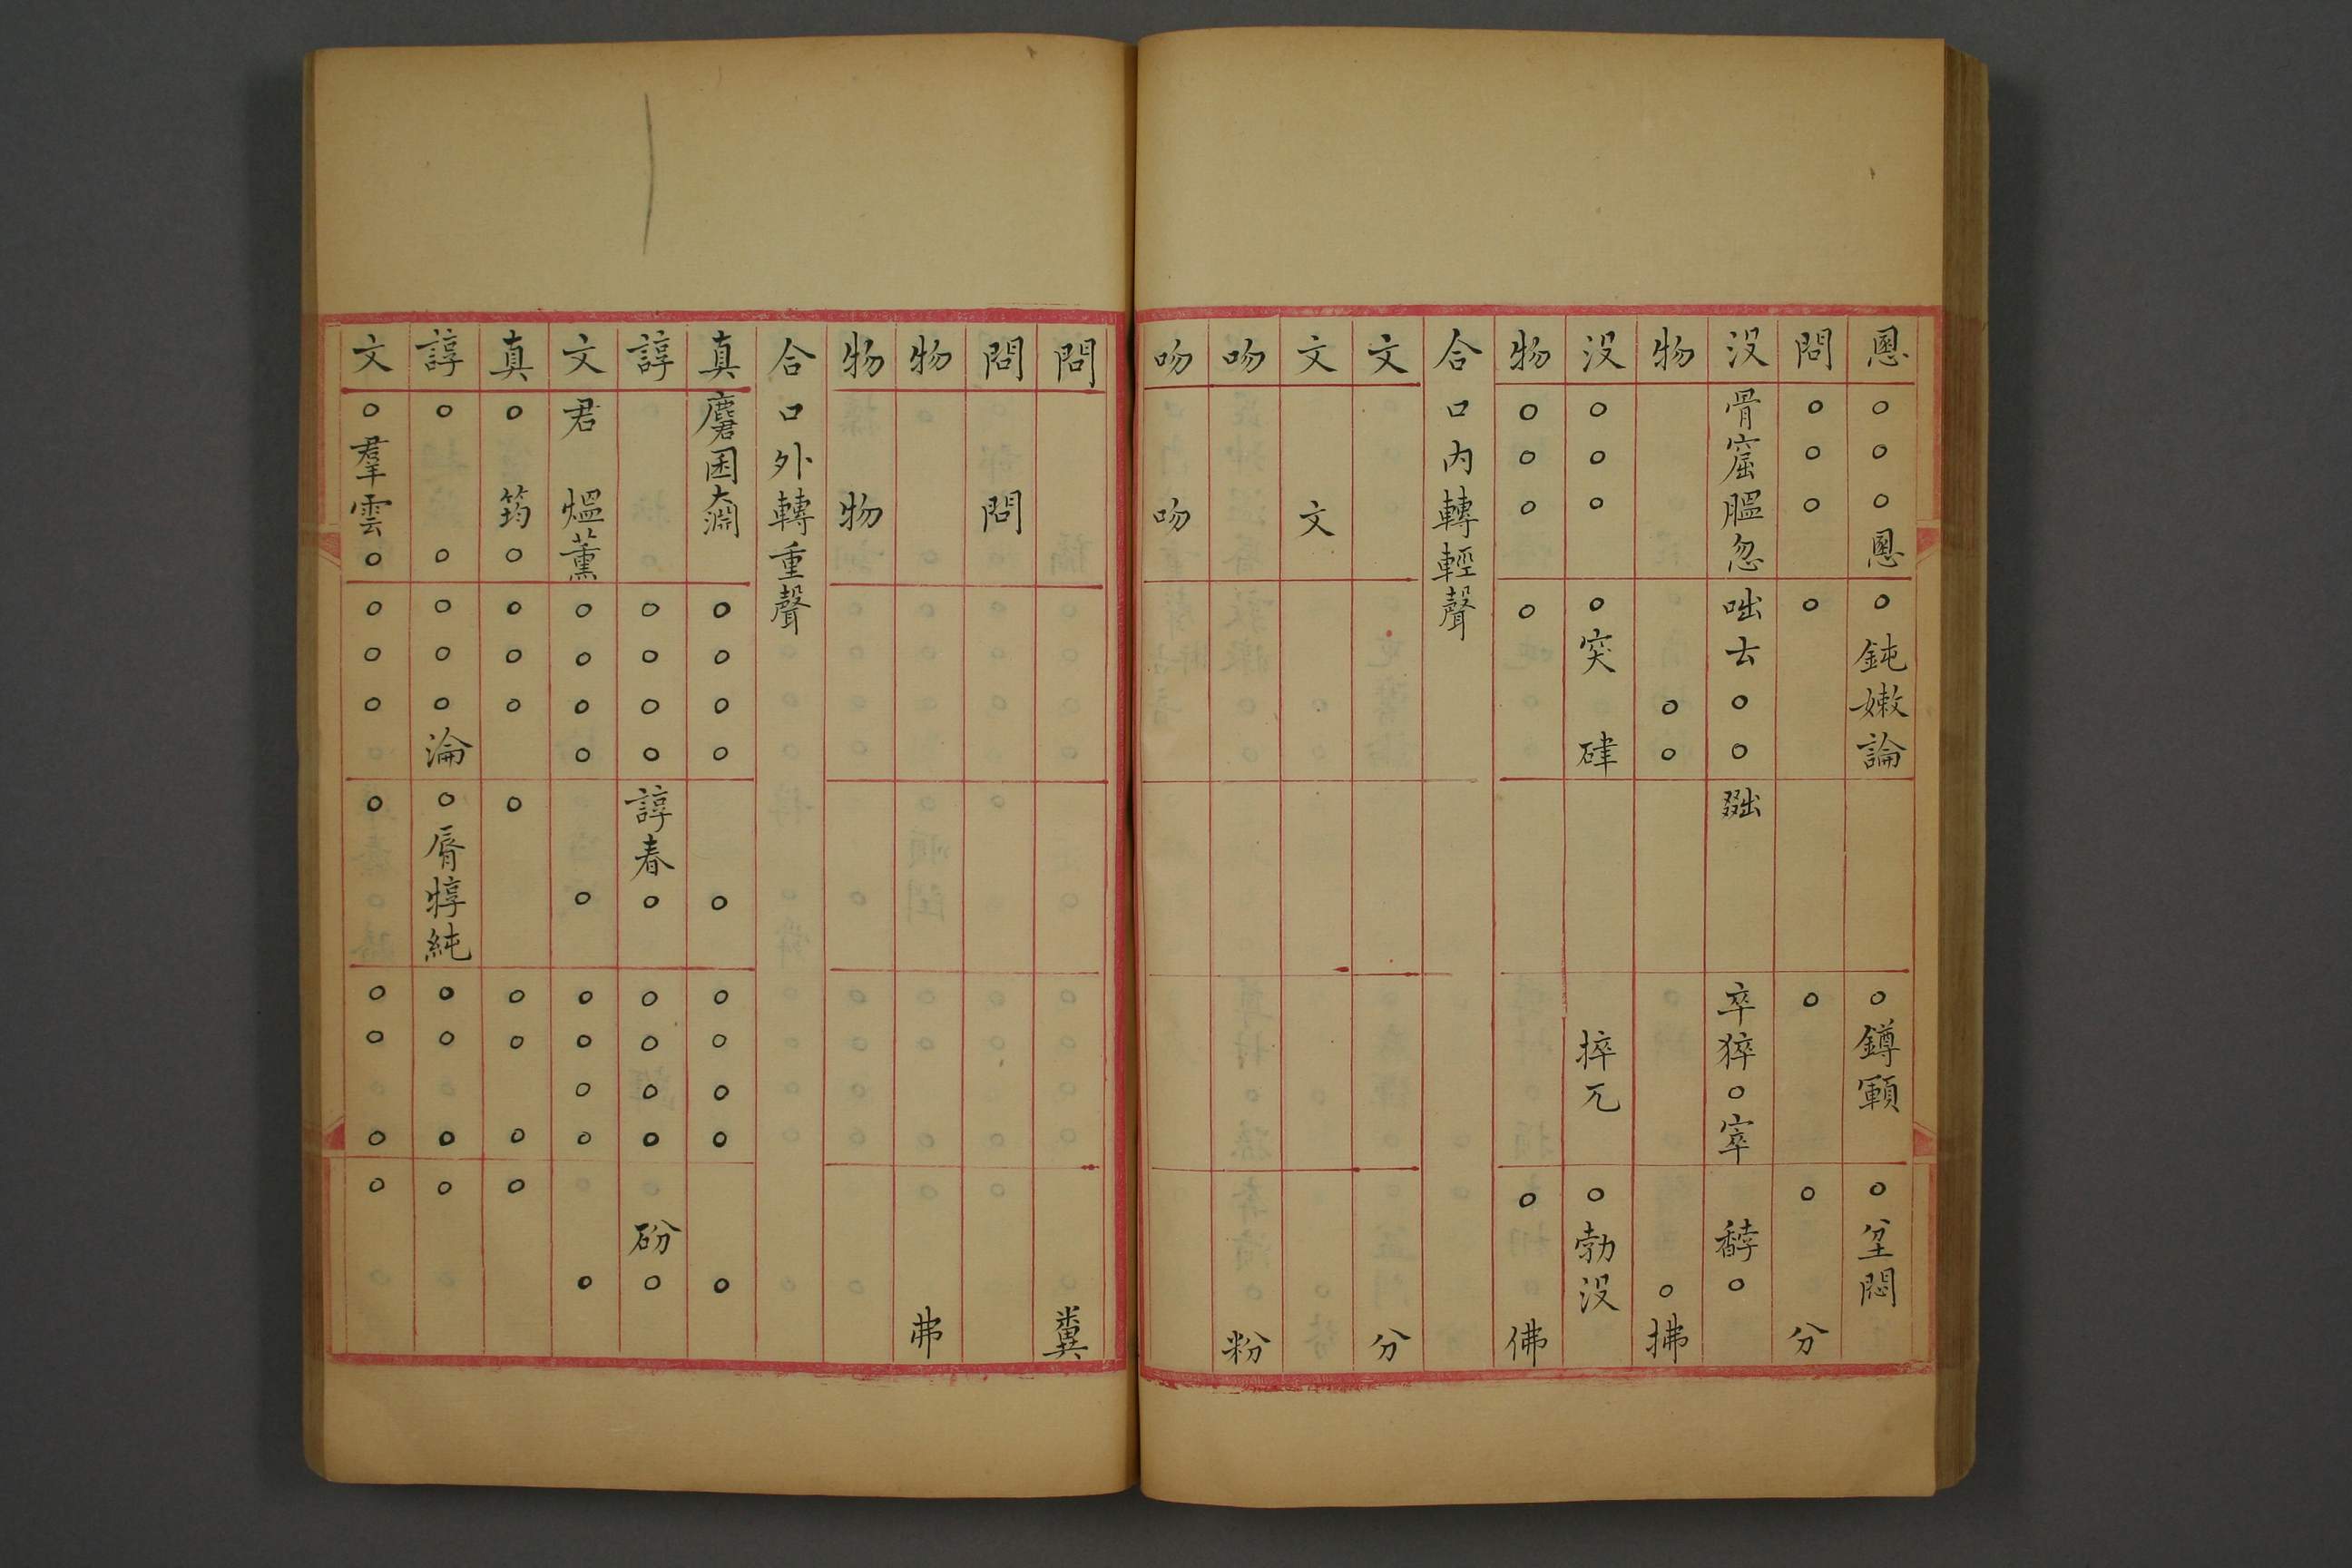 慁○○○慁○鈍嫩論○鐏顐○坌悶
問○○○○○○分
没骨窟腽忽咄𠫓○○卒猝○窣馞○
物○○○拂
没○○○○突硉捽兀○勃没
物○○○○○佛
合口內轉輕聲
文分
文文
吻粉
吻吻
問糞
問問
物弗
物物
合口外轉重聲
真麏囷○○○○○○○○○○
諄○○○○諄春○○○○○砏○
文君熅薰○○○○○○○○○○
真○筠○○○○○○○○○
諄○○○○○淪○脣犉純○○○○
文○羣雲○○○○○○○○○